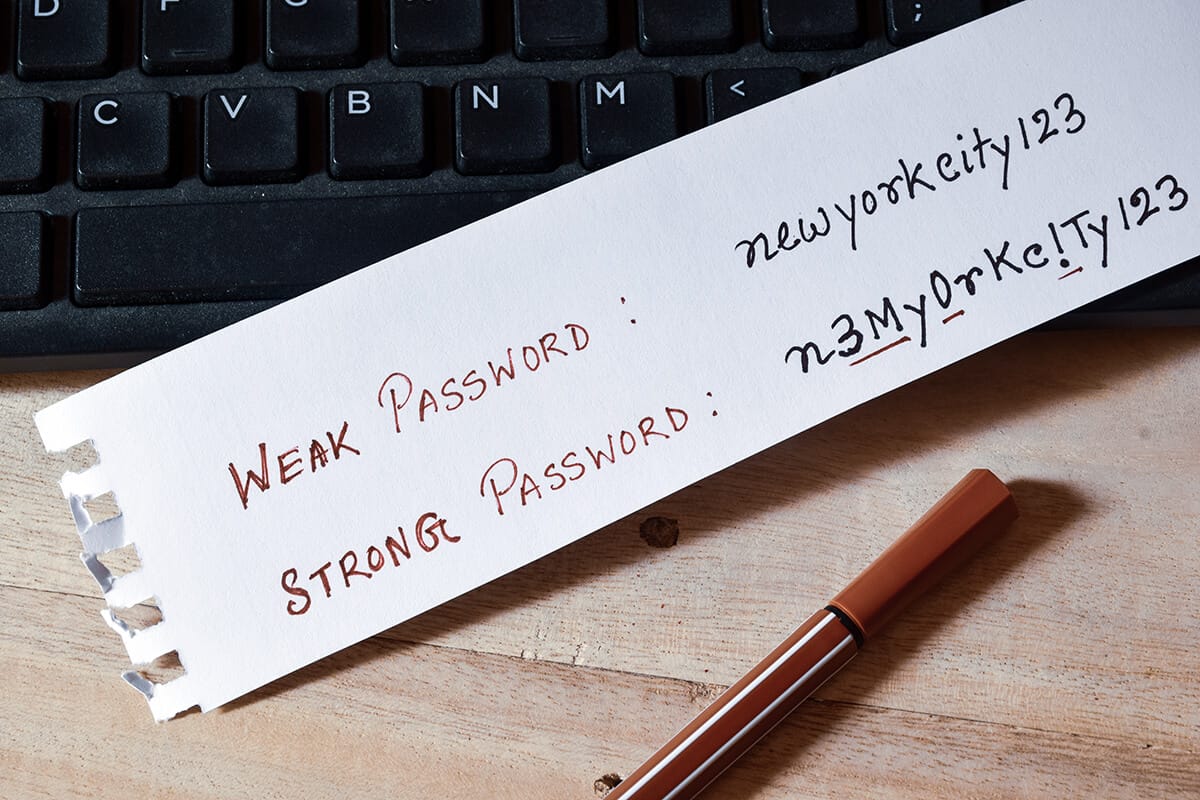 D G ;
C V B N M <
WEAK PASSWORD : newyorkcity123
STRONG PASSWORD : n3My0rKc!Ty123